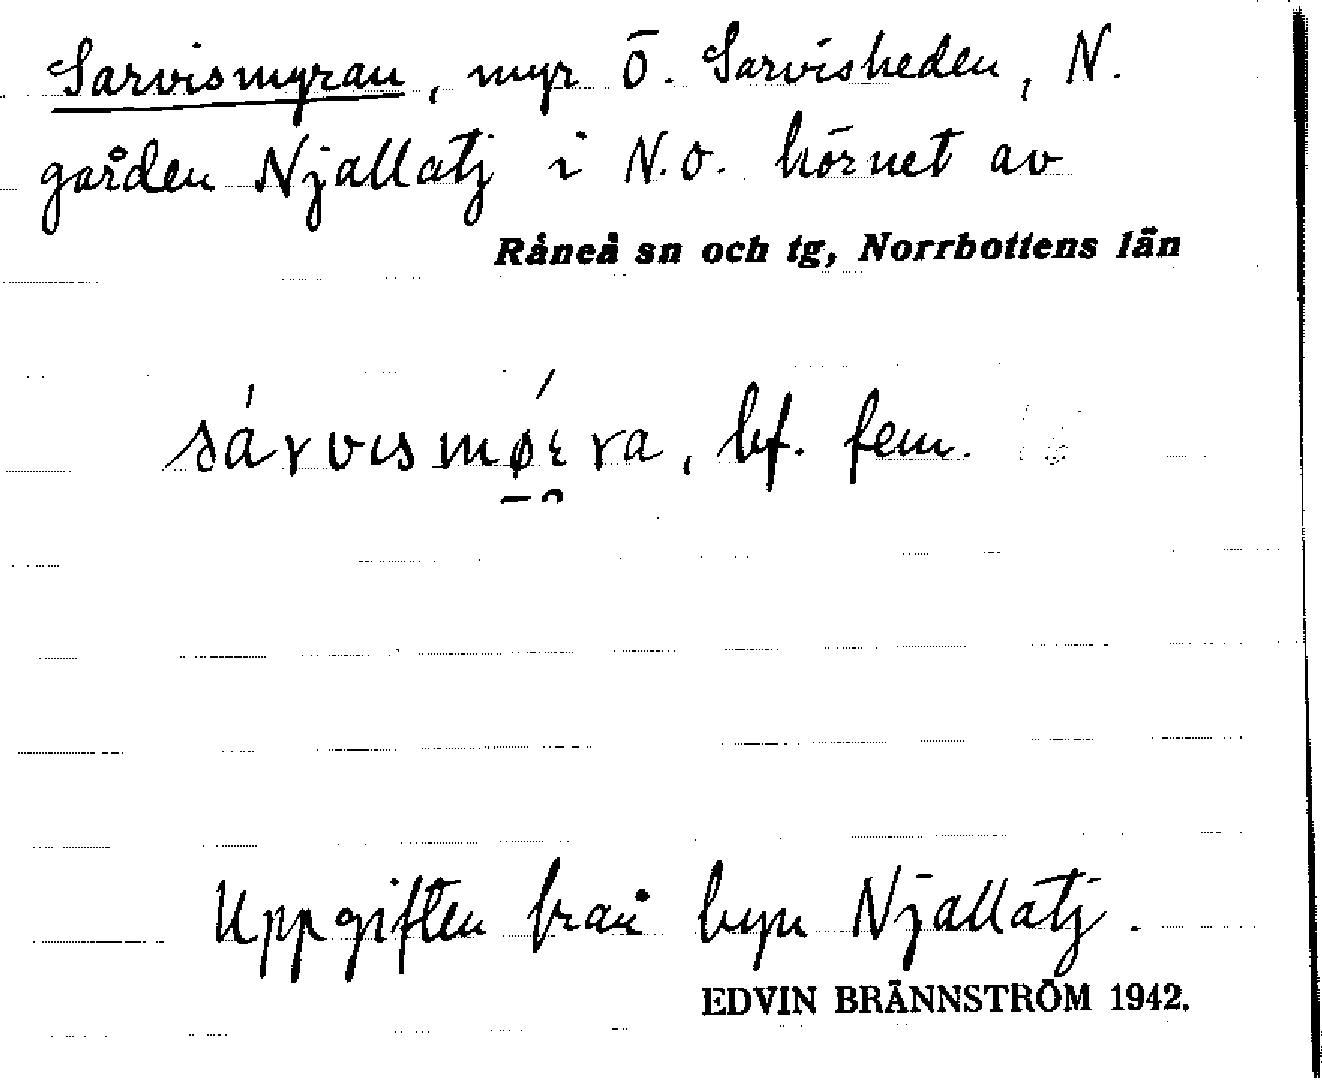 Sarvismyran, myr Ö. Sarvisheden, N.
gården Njallatj i N.O. hörnet av
Råneå sn och tg, Norrbottens län
sárvısmǿɛra, bf. fem.
Uppgiften från byn Njallatj.
EDVIN BRÄNNSTRÖM 1942.